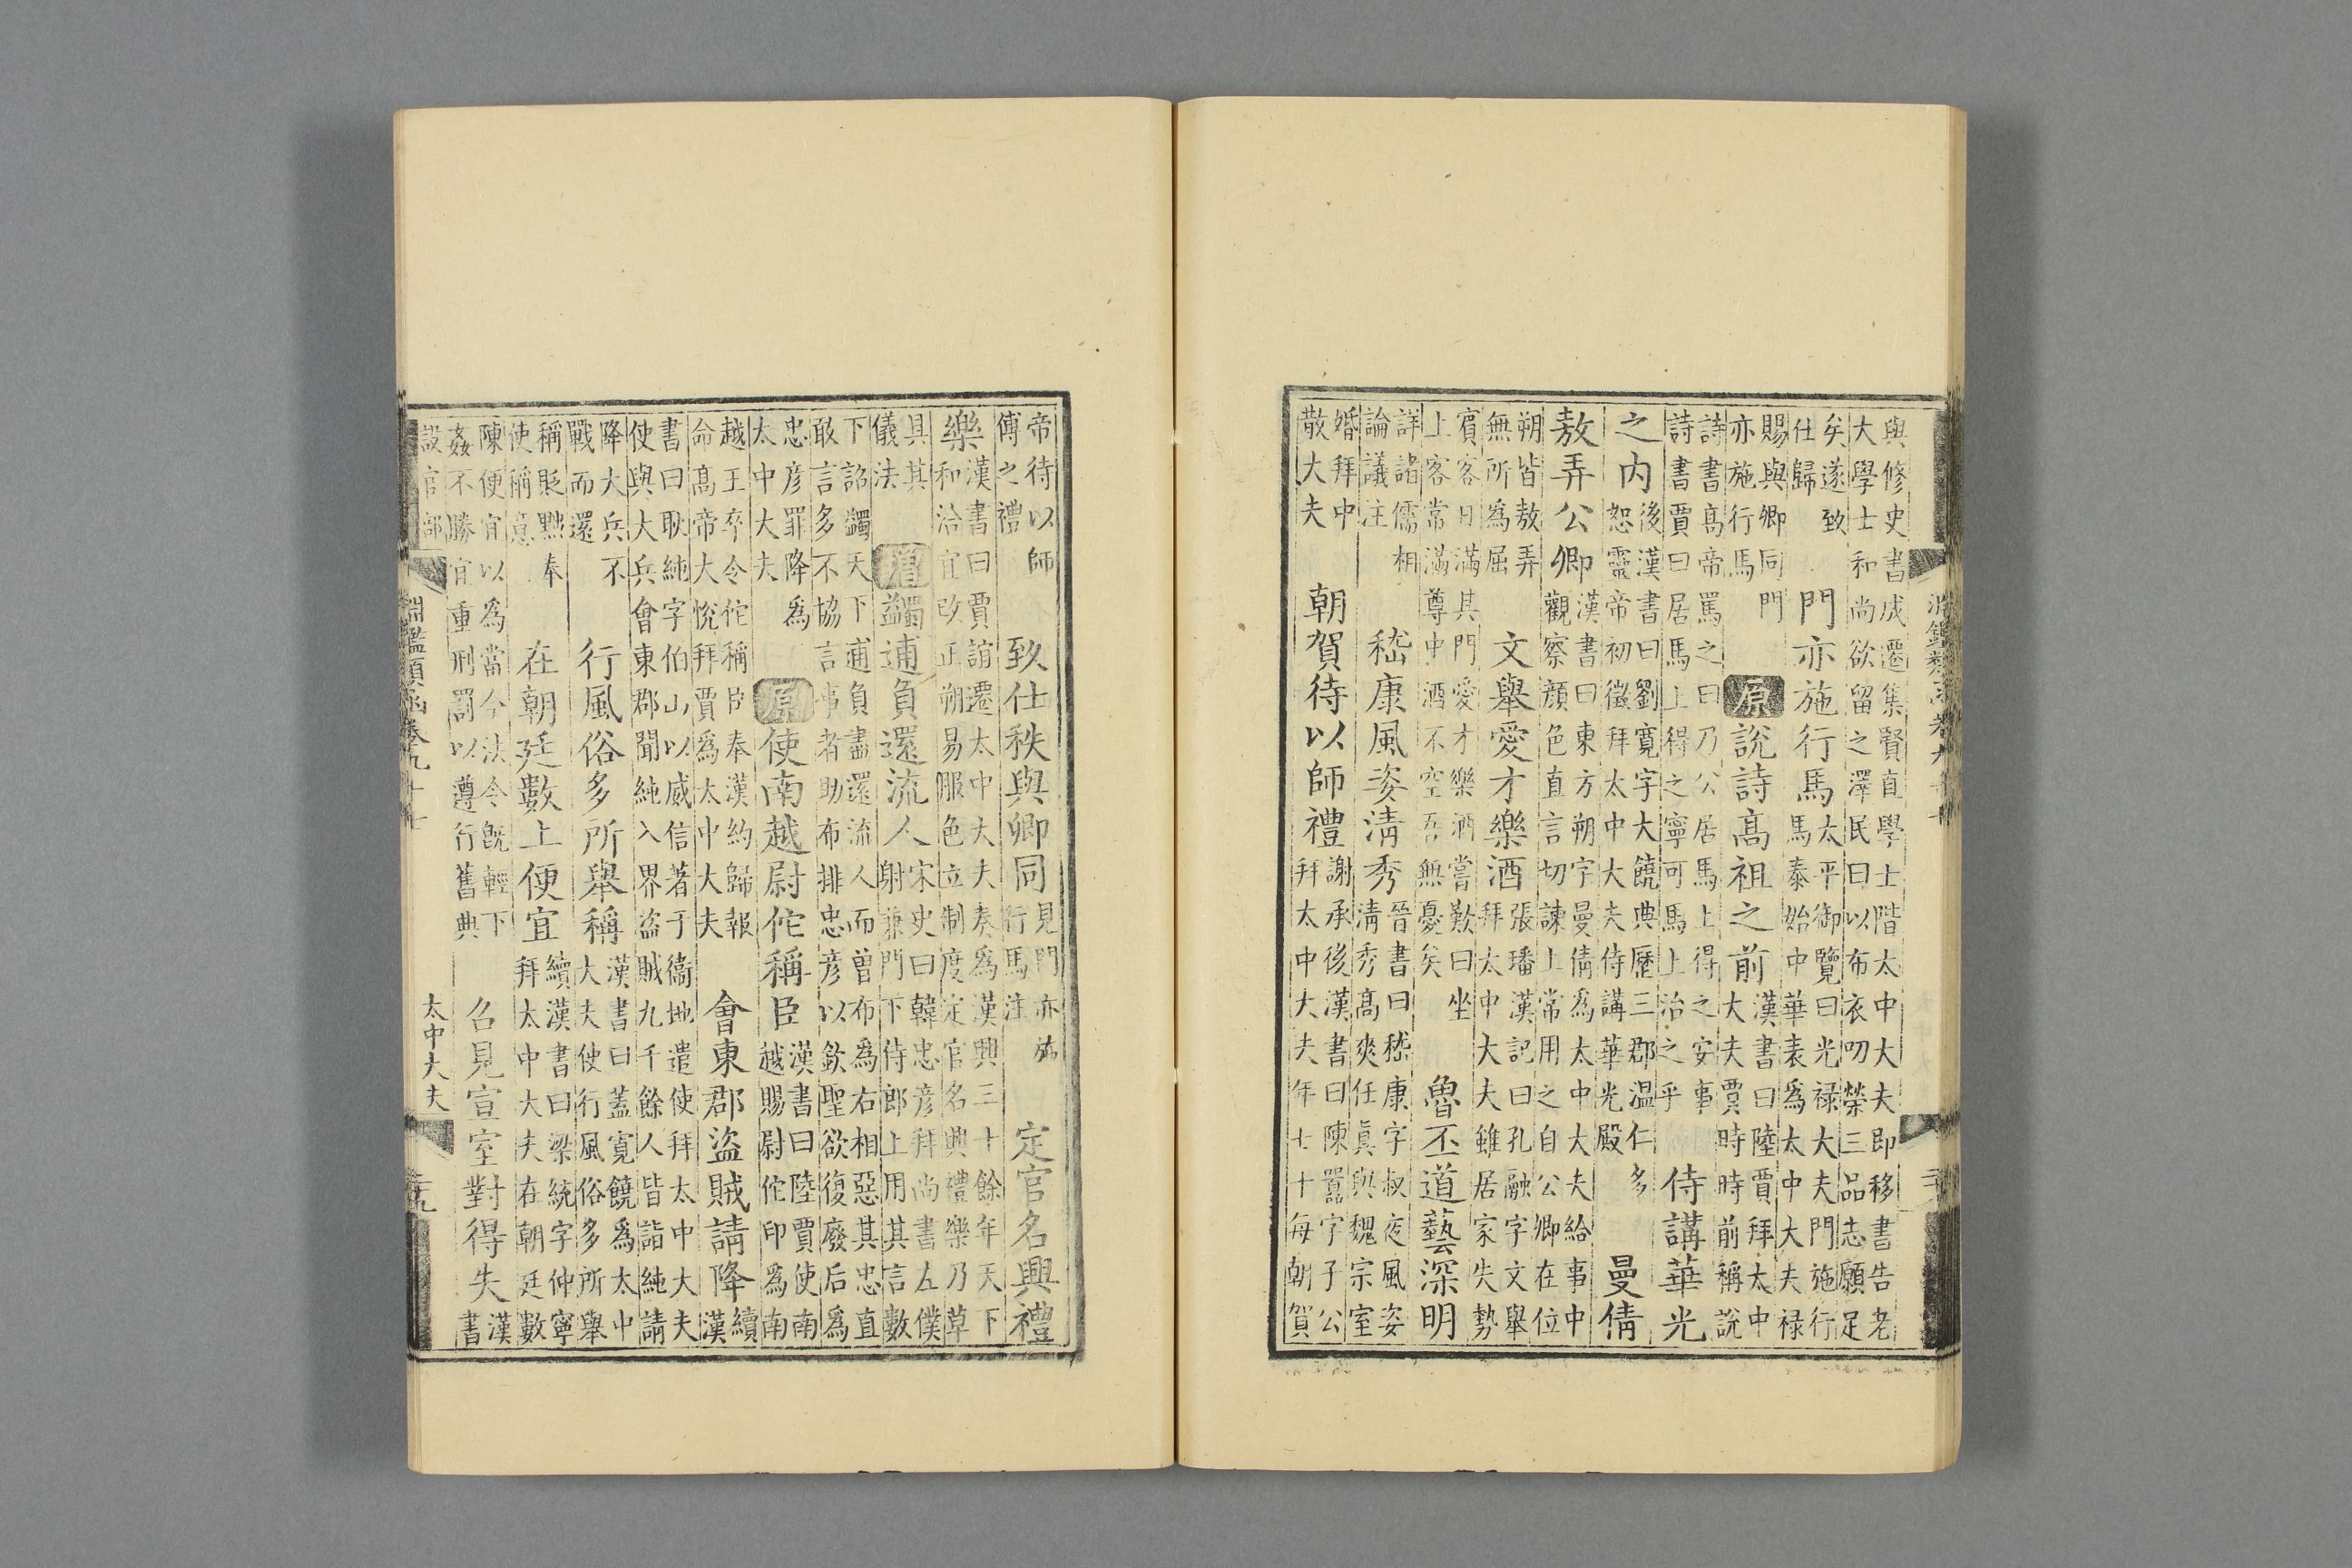 淵鑑類函卷九十七
與修史書成遷集賢直學士階太中大夫即移書告老
大學士和尚欲留之澤民曰以布衣叨榮三品志願足
矣遂致
仕歸
門亦施行馬
太平御覽曰光禄大夫門施行
馬泰始中華表爲太中大夫禄
賜與卿同門
亦施行馬
原
說詩高祖之前
漢書曰陸賈拜太中
大夫賈時時前稱說
詩書高帝罵之曰乃公居馬上得之安事
詩書賈曰居馬上得之寧可馬上治之乎
侍講華光
之内
後漢書曰劉寬字大饒典歷三郡温仁多
恕靈帝初徵拜太中大夫侍講華光殿
曼倩
敖弄公卿
漢書曰東方朔字曼倩爲太中大夫給事中
觀察顔色直言切諫上常用之自公卿在位
朔皆敖弄
無所爲屈
文舉愛才樂酒
張璠漢記曰孔融字文舉
拜太中大夫雖居家失勢
賓客日滿其門愛才樂酒嘗歎曰坐
上客常滿尊中酒不空吾無憂矣
魯丕道藝深明
詳諸儒相
論議注
嵇康風姿淸秀
晉書曰嵇康字叔夜風姿
淸秀高爽任眞與魏宗室
婚拜中
散大夫
朝賀待以師禮
謝承後漢書曰陳囂字子公
拜太中大夫年七十每朝賀
帝待以師
傅之禮
致仕秩與卿同
見門亦施
行馬注
定官名興禮
樂
漢書曰賈誼遷太中大夫奏爲漢興三十餘年天下
和洽宜改正朔易服色立制度定官名興禮樂乃草
具其
儀法
增
蠲逋負還流人
宋史曰韓忠彦拜尚書左僕
射兼門下侍郎上用其言數
下詔蠲天下逋負盡還流人而曾布爲右相惡其忠直
敢言多不協言事者助布排忠彦以欽聖欲復廢后爲
忠彦罪降爲
太中大夫
原
使南越尉佗稱臣
漢書曰陸賈使南
越賜尉佗印爲南
越王卒令佗稱臣奉漢約歸報
命高帝大悅拜賈爲太中大夫
會東郡盜賊請降
續
漢
書曰耿純字伯山以威信著于衞地遣使拜太中大夫
使與大兵會東郡聞純入界盜賊九千餘人皆詣純請
降大兵不
戰而還
行風俗多所舉稱
漢書曰蓋寬饒爲太中
大夫使行風俗多所舉
稱貶黜奉
使稱意
在朝廷數上便宜
續漢書曰梁統字仲寧
拜太中大夫在朝廷數
陳便宜以爲當今法令旣輕下
姦不勝宜重刑罰以遵行舊典
召見宣室對得失
漢
書
設官部
淵鑑類函卷九十七
太中大夫